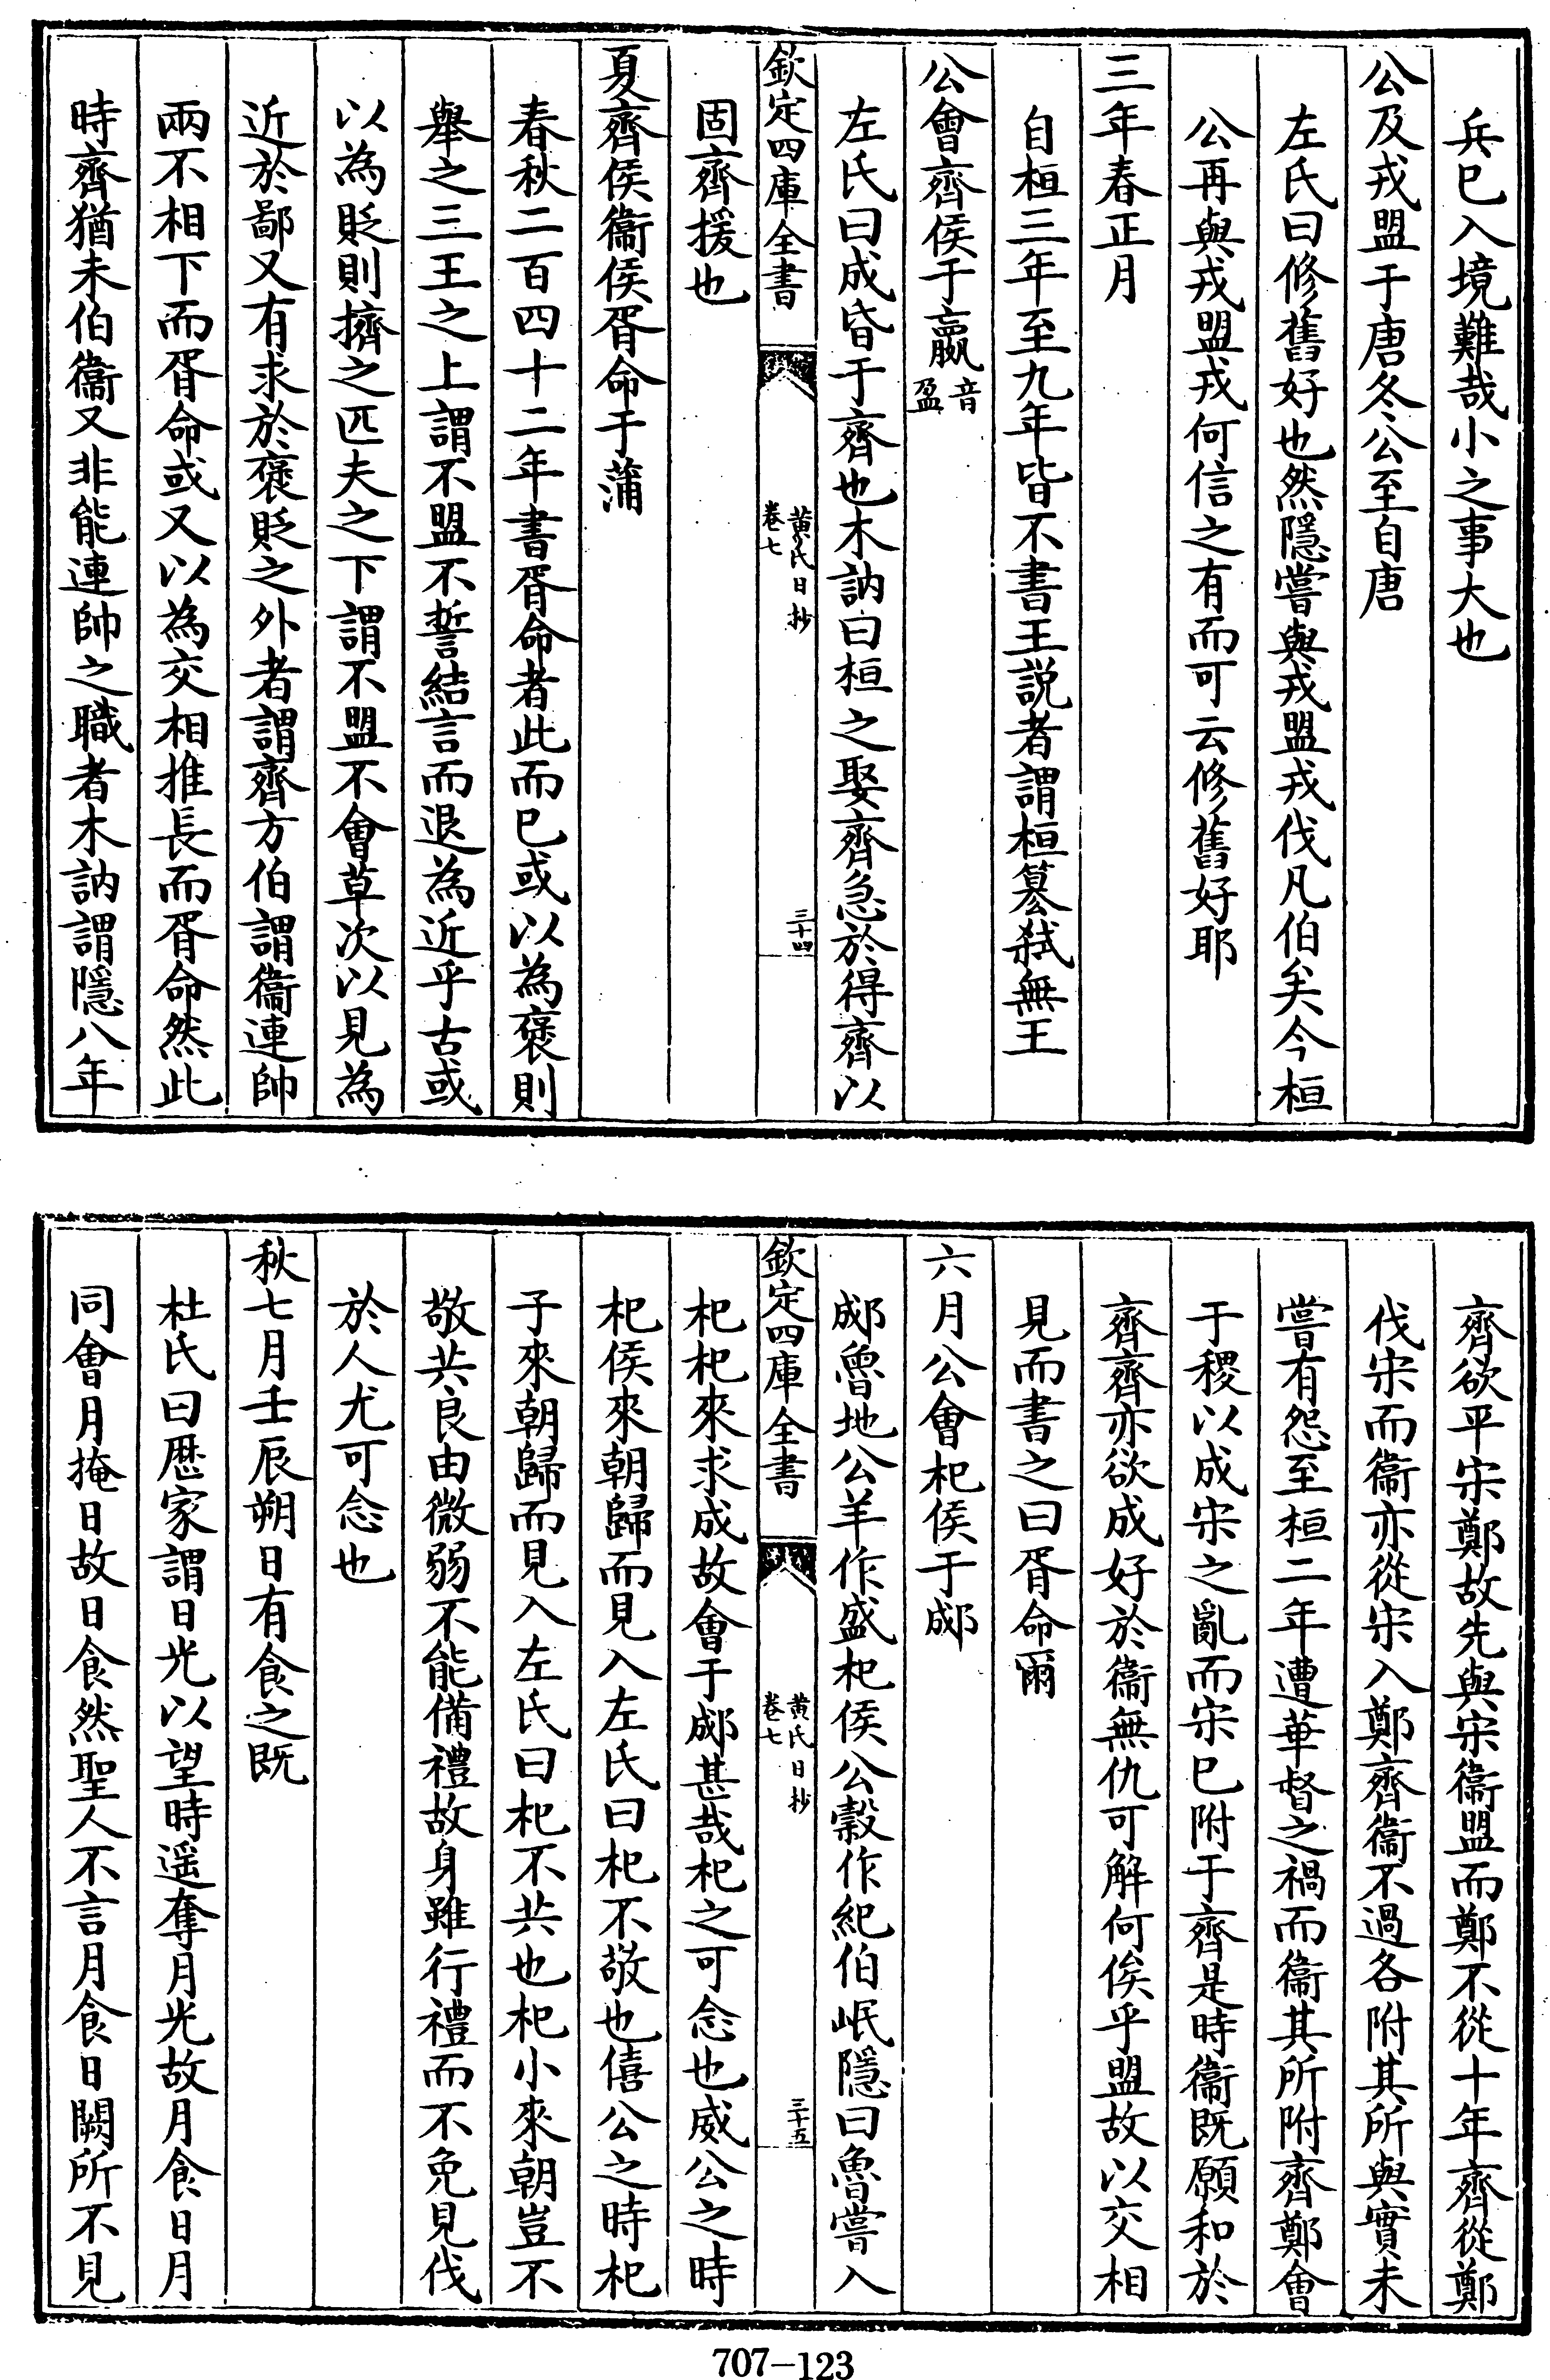 兵已入境難哉小之事大也
公及戎盟于唐冬公至自唐
左氏曰修舊好也然隱嘗與戎盟戎伐凡伯矣今桓
公再與戎盟戎何信之有而可云修舊好耶
三年春正月
自桓三年至九年皆不書王説者謂桓簒弑無王
公會齊侯于嬴音盈
左氏曰成昏于齊也木訥曰桓之娶齊急於得齊以
欽定四庫全書
黄氏日抄
卷七
三十四
固齊援也
夏齊侯衞侯胥命于蒲
春秋二百四十二年書胥命者此而已或以為襃則
舉之三王之上謂不盟不誓結言而退為近乎古或
以為貶則擠之匹夫之下謂不盟不會草次以見為
近於鄙又有求於襃貶之外者謂齊方伯謂衞連帥
兩不相下而胥命或又以為交相推長而胥命然此
時齊猶未伯衞又非能連帥之職者木訥謂隱八年
齊欲平宋鄭故先與宋衞盟而鄭不從十年齊從鄭
伐宋而衞亦從宋入鄭齊衞不過各附其所與實未
嘗有怨至桓二年遭華督之禍而衞其所附齊鄭會
于稷以成宋之亂而宋已附于齊是時衞既願和於
齊齊亦欲成好於衞無仇可解何俟乎盟故以交相
見而書之曰胥命爾
六月公會杞侯于郕
郕魯地公羊作盛杞侯公穀作紀伯岷隱曰魯嘗入
欽定四庫全書
黄氏日抄
卷七
三十五
杞杞來求成故會于郕甚哉杞之可念也威公之時
杞侯來朝歸而見入左氏曰杞不敬也僖公之時杞
子來朝歸而見入左氏曰杞不共也杞小來朝豈不
敬共良由微弱不能備禮故身雖行禮而不免見伐
於人尤可念也
秋七月壬辰朔日有食之既
杜氏曰歴家謂日光以望時遥奪月光故月食日月
同會月掩日故日食然聖人不言月食日闕所不見
707-123